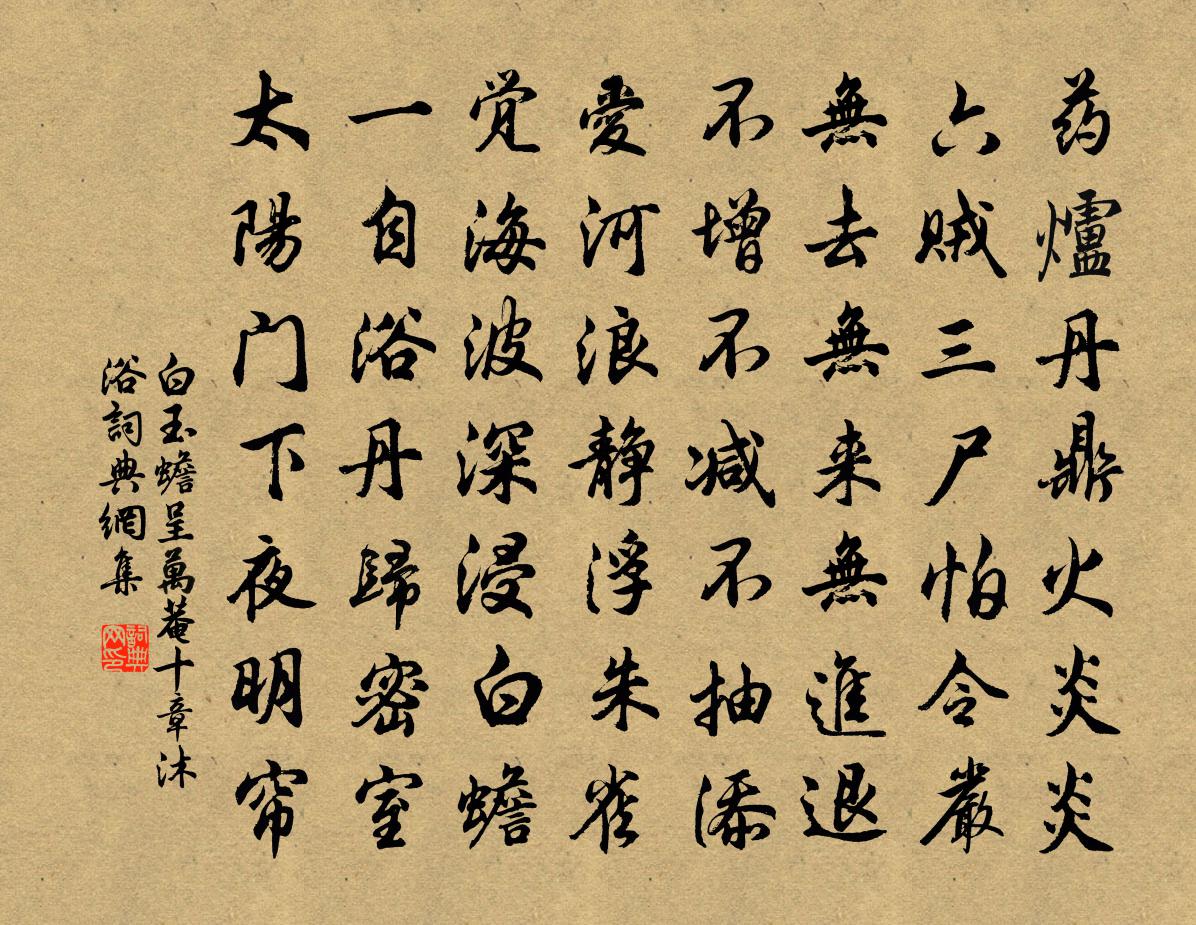 药爐丹鼎火炎炎
六贼三尸怕令嚴
無去無来無進退
不增不减不抽添
愛河浪静浮朱雀
覚海波深浸白蟾
一自浴丹歸密室
太陽门下夜明帘
白玉蟾呈萬菴十章沐
浴詞典網集
詞典网印